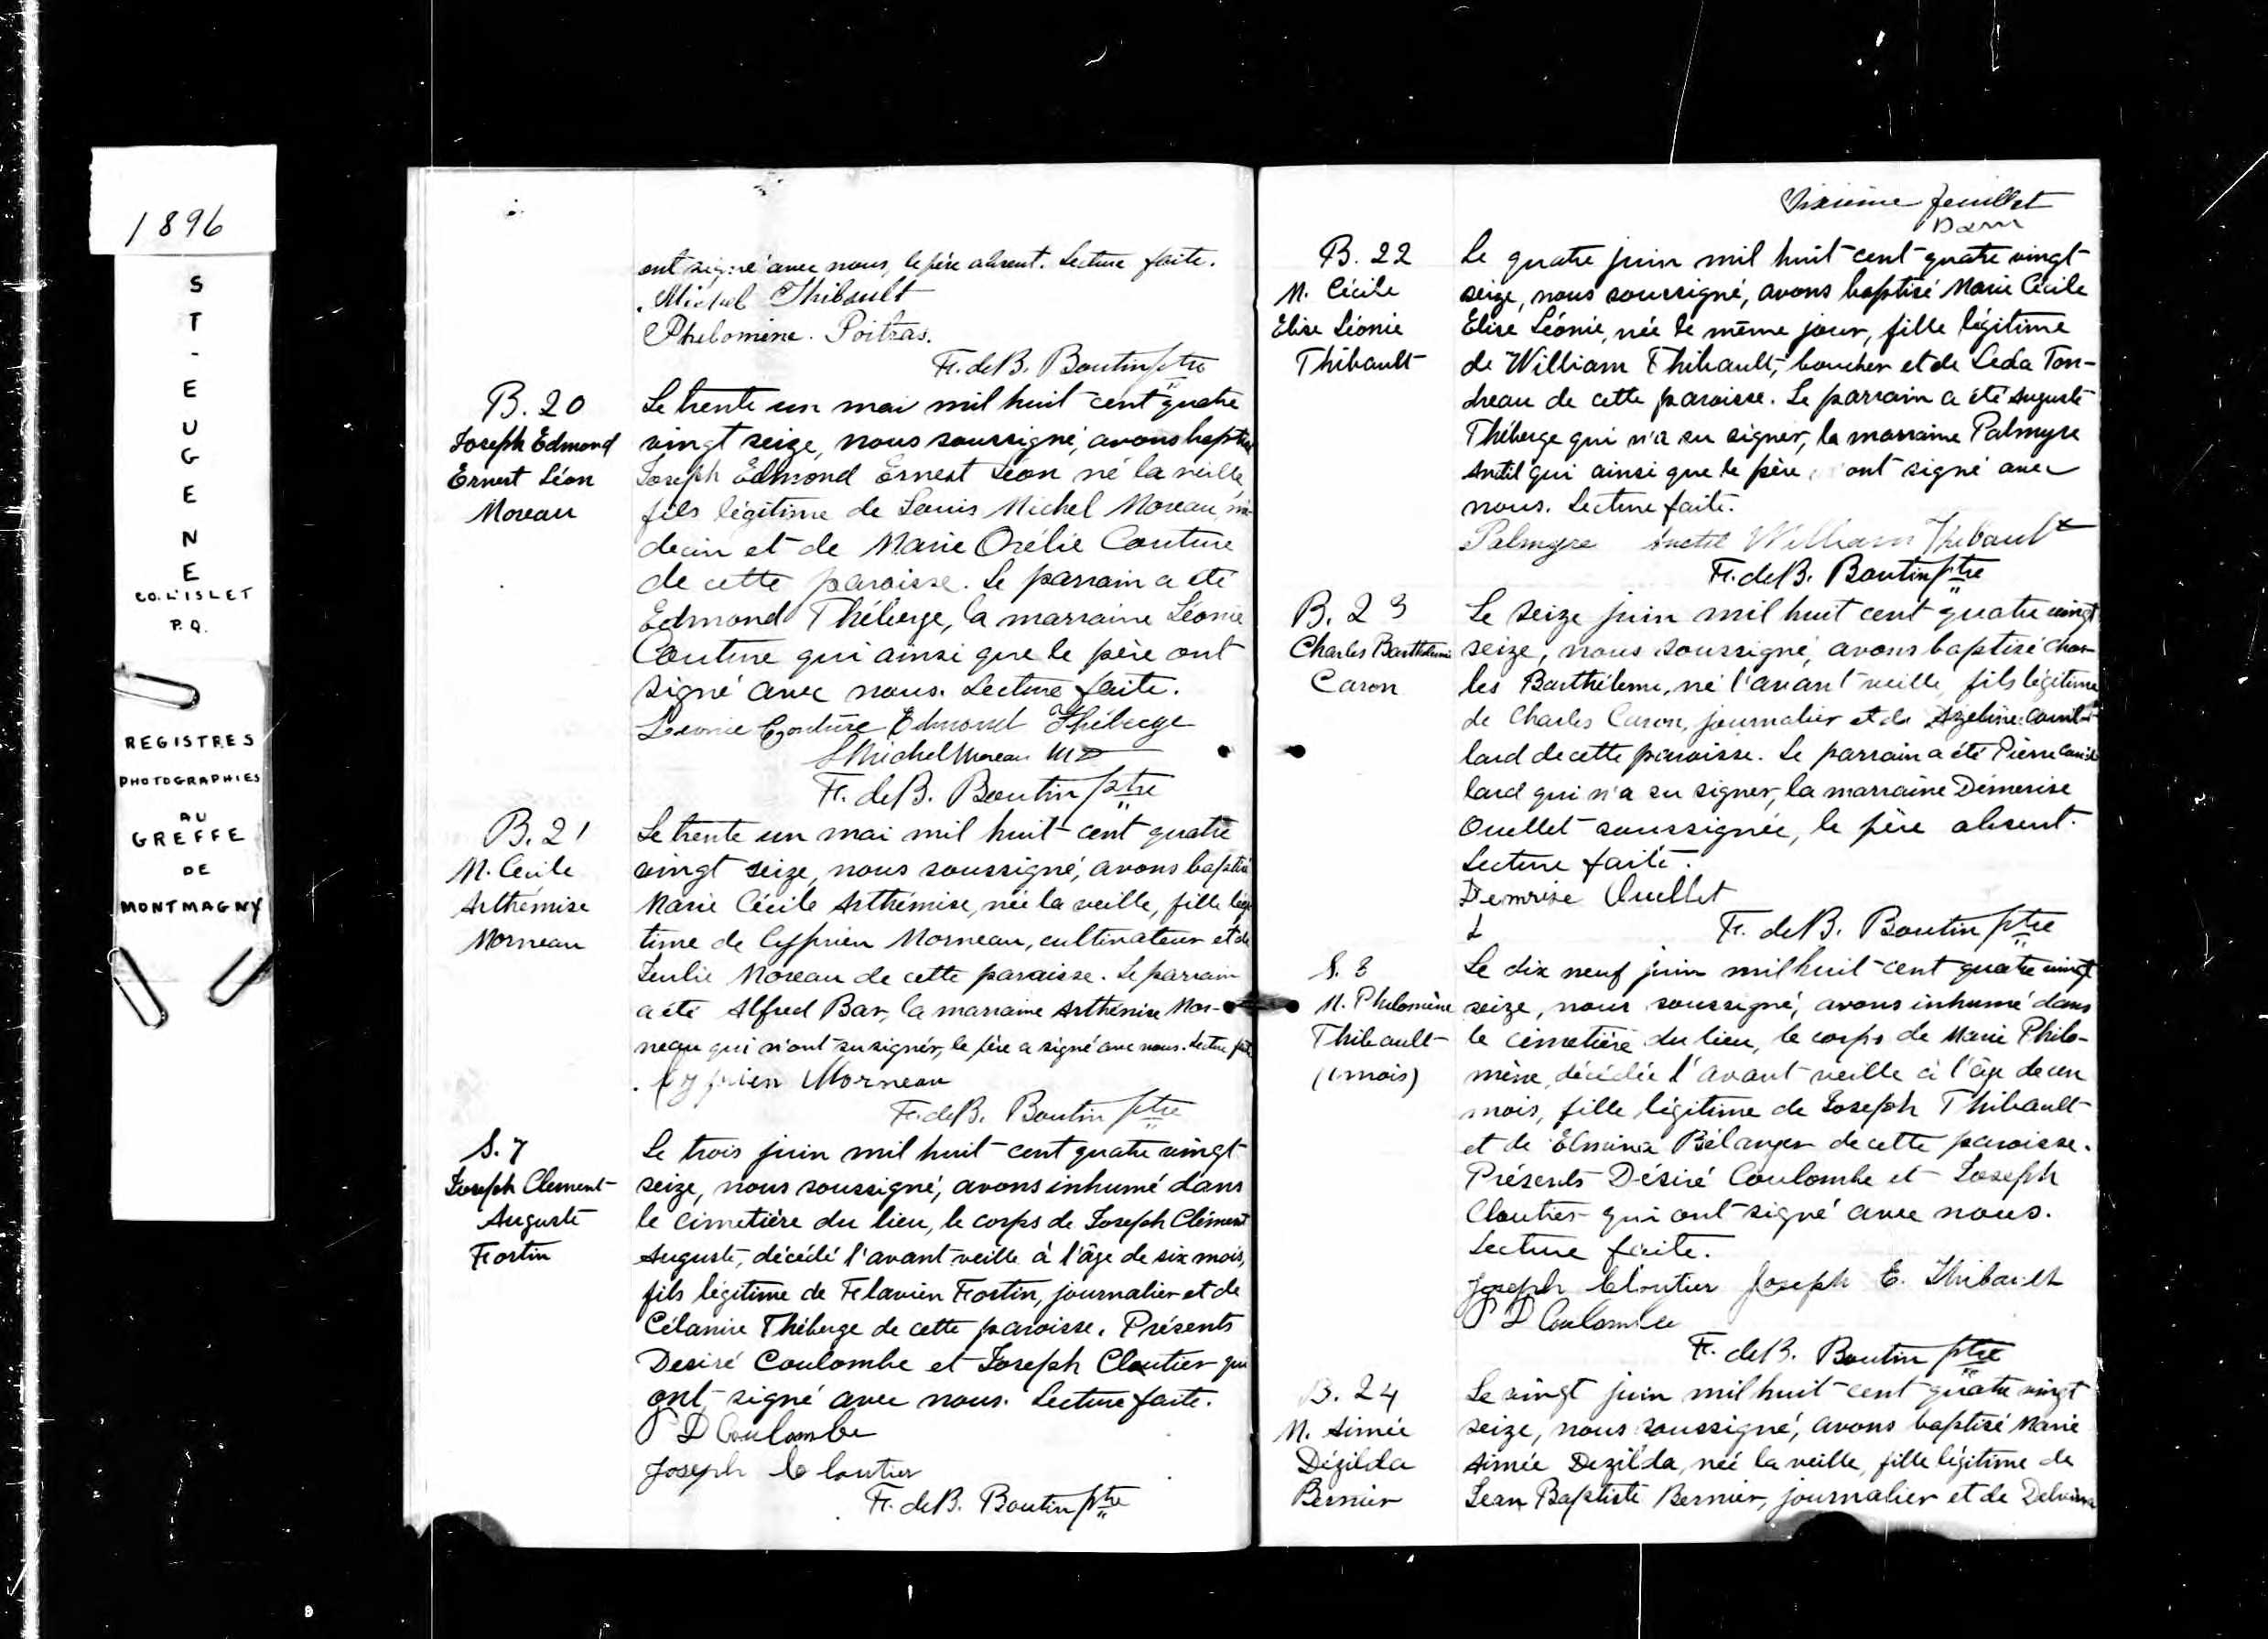 1896
S
T
-
E
U
G
E
N
E
CO. L'ISLET
P.Q.
REGISTRES
PHOTOGRAPHIES
AU
GREFFE
DE
MONTMAGNY
ont signé avec nous, le père absent. Lecture faite.
Michel Thibault
Philomène Poitras.
F. de B. Boutin ptre
B. 20
Joseph Edmond
Ernest Léon
Moreau
Le trente un mai mil huit cent quatre
vingt seize, nous soussigné, avons baptisé
Joseph Edmond Ernest Léon né la veille,
fils légitime de Louis Michel Moreau, mé-
decin et de Marie Orélie Couture
de cette paroisse. Le parrain a été
Edmond Théberge, la marraine Léonie
Couture qui ainsi que le père ont
signé avec nous. Lecture faite.
Leonie Couture Edmond Théberge
L Michel Moreau MD
F. de B. Boutin ptre
B. 21
M. Cecile
Arthémise
Morneau
Le trente un mai mil huit cent quatre
vingt seize, nous soussigné, avons baptisé
Marie Cécile Arthémise, née la veille, fille légi-
time de Cyprien Morneau, cultivateur et de
Moreau de cette paroisse. Le parrain
a été Alfred Bar, la marraine Arthémise Mor-
neau qui n'ont su signer, le père a signé avec nous. Lecture faite
Cyprien Morneau
F. de B. Boutin ptre
S. 7
Joseph Clement
Auguste
Fortin
Le trois juin mil huit cent quatre vingt
seize, nous soussigné, avons inhumé dans
le cimetière du lieu, le corps de Joseph Clément
Auguste, décédé l'avant veille à l'âge de six mois,
fils légitime de Flavien Fortin, journalier et de
Célanire Théberge de cette paroisse. Présents
Desiré Coulombe et Joseph Cloutier qui
ont signé avec nous. Lecture faite.
P D Coulombe
Joseph Cloutier
F. de B. Boutin ptre
Sixième feuillet
B. 22
M. Cécile
Elise Léonie
Thibault
Le quatre juin mil huit cent quatre vingt
seize, nous soussigné, avons baptisé Marie Cécile
Elise Léonie, née le même jour, fille légitime
de William Thibault, boucher et de Leda Ton-
dreau de cette paroisse. Le parrain a été Auguste
Théberge qui n'a su signer, la marraine Palmyre
Anctil qui ainsi que le père ont signé avec
nous. Lecture faite.
Palmyre Anctil William Thibault
F. de B. Boutin ptre
B. 23
Charles Barthélemi
Caron
Le seize juin mil huit cent quatre vingt
seize, nous soussigné, avons baptisé Char-
les Barthélemi, né l'avant veille, fils légitime
de Charles Caron, journalier et de Azeline Couil-
lard de cette paroisse. Le parrain a été Pierre Couil-
lard qui n'a su signer, la marraine Démerise
Ouellet soussignée, le père absent.
Lecture faite.
Demrise Ouellet
F. de B. Boutin ptre
S. 8
M. Philomène
Thibault
(1 mois)
Le dix neuf juin mil huit cent quatre vingt
seize, nous soussigné, avons inhumé dans
le cimetière du lieu, le corps de Marie Philo-
mène, décédée l'avant veille à l'âge de un
mois, fille légitime de Joseph Thibault
et de Elmina Bélanger de cette paroisse.
Présents Désiré Coulombe et Joseph
Cloutier qui ont signé avec nous.
Lecture faite.
Joseph Cloutier Joseph E. Thibault
P D Coulombe
F. de B. Boutin ptre
B. 24
M. Aimée
Dézilda
Bernier
Le vingt juin mil huit cent quatre vingt
seize, nous soussigné, avons baptisé Marie
Aimée Dezilda, née la veille, fille légitime de
Jean Baptiste Bernier, journalier et de Delvina